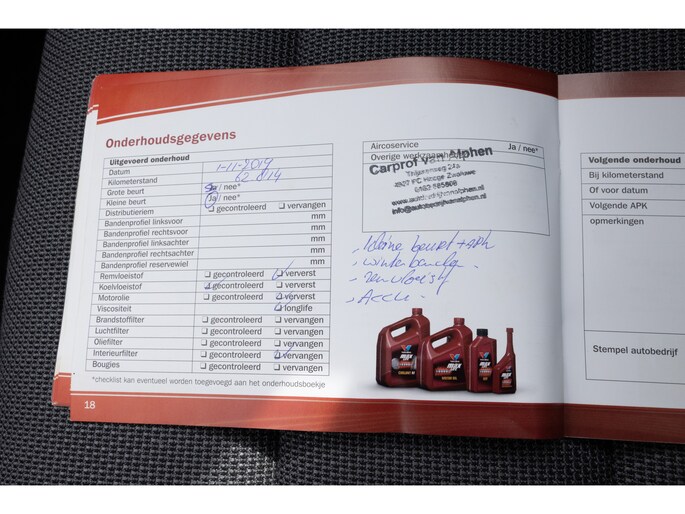 Onderhoudsgegevens
Uitgevoerd onderhoud
Datum 1-11-2019
Kilometerstand 62 814
Grote beurt Ja / nee*
Kleine beurt Ja / nee*
Distributieriem ❑ gecontroleerd ❑ vervangen
Bandenprofiel linksvoor mm
Bandenprofiel rechtsvoor mm
Bandenprofiel linksachter mm
Bandenprofiel rechtsachter mm
Bandenprofiel reservewiel mm
Remvloeistof ❑ gecontroleerd ❑ ververst
Koelvloeistof ❑ gecontroleerd ❑ ververst
Motorolie ❑ gecontroleerd ❑ ververst
Viscositeit ❑ longlife
Brandstoffilter ❑ gecontroleerd ❑ vervangen
Luchtfilter ❑ gecontroleerd ❑ vervangen
Oliefilter ❑ gecontroleerd ❑ vervangen
Interieurfilter ❑ gecontroleerd ❑ vervangen
Bougies ❑ gecontroleerd ❑ vervangen
*checklist kan eventueel worden toegevoegd aan het onderhoudsboekje
18
Aircoservice Ja / nee*
Overige werkzaamheden
Carprof van Alphen
4927 PC Hooge Zwaluwe
- kleine beurt + apk
- winterbanden
- remvloeistof
- Accu
Volgende onderhoud
Bij kilometerstand
Of voor datum
Volgende APK
opmerkingen
Stempel autobedrijf